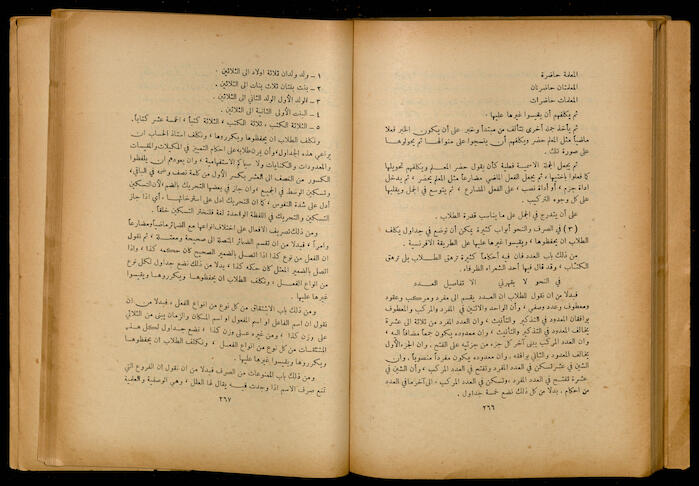 المعلمة حاضرة
المعلمتان حاضرتان
المعلمات حاضرات
ثم يكلفهم أن يقيسوا غيرها عليها .
ثم يأخذ جملة أخرى تتألف من مبتدأ وخبر على أن يكون الخبر فعلا
ماضياً مثل المعلم حضر ويكلفهم أن ينسجوا على منوالها ثم يحولوها
على صورة تلك .
ثم يجعل الجملة الاسمية فعلية كأن يقول حضر المعلم ويكلفهم تحويلها
كما فعلوا باختها ، ثم يجعل الفعل الماضي مضارعاً مثل المعلم يحضر ، ثم يدخل
اداة جزم ، أو أداة نصب ، على الفعل المضارع ، ثم يتوسع في الجمل ويقلبها
على كل وجوه التركيب .
على أن يتدرج في الجمل على ما يناسب قدرة الطلاب .
( ٣ ) في الصرف والنحو أبواب كثيرة يمكن أن توضع في جداول يكلف
الطلاب ان يحفظوها ، ويقيسوا غيرها عليها على الطريقة الافرنسية .
من ذلك باب العدد فان فيه أحكاماً كثيرة ترهق الطلاب بلى ترهق
الكتّاب ، وقد قال فيها أحد الشعراء الظرفاء .
في النحو لا يقهرني الا تفاصيل العدد
فبدلا من ان نقول الطلاب ان العدد يقسم الى مفرد ومركب وعقود
ومعطوف وعدد وصفي ، وأن الواحد والاثنين في المفرد والمركب والمعطوف
يوافقان المعدود في التذكير والتأنيث ، وان العدد المفرد من ثلاثة الى عشرة
يخالف المعدود في التذكير والتأنيث ، وان المعدود يكون جمعاً مضافاً اليه ،
وان العدد المركب يبنى آخر كل جزء من جزئيه على الفتح ، وان الجزء الأول
يخالف المعدود والثاني يوافقه ، وان معدوده يكون مفرداً منصوباً ، وان
الشين في عشر تسكن في العدد المفرد وتفتح في العدد المركب ، وأن الشين في
عشرة تفتح في العدد المفرد وتسكن في العدد المركب ، الى آخر ما في العدد
من أحكام ، بدلا من كل ذلك نضع خمسة جداول .
٢٦٦
١ – ولد ولدان ثلاثة اولاد الى الثلاثين .
٢ – بنت بنتان ثلاث بنات الى الثلاثين .
٣ – الولد الأول الولد الثاني الى الثلاثين .
٤ – البنت الأولى الثانية الى الثلاثين .
٥ – الثلاثة الكتب ، ثلاثة الكتب ، الثلاثة كتباً ، الخمسة عشر كتاباً .
ونكلف الطلاب ان يحفظوها ويكرروها ، ونكلف استاذ الحساب ان
يراعي هذه الجداول، وأن يمرن طلابه على احكام التمييز في المكيلات والمقيسات
والمعدودات والكنايات ولا سيما كم الاستفهامية ، وان يعودهم ان يلفظوا
الكسور من النصف الى العشر بكسر الأول من كلمة نصف وضمه في الباقي،
وتسكين الوسط في الجميع ، وان جاز في بعضها التحريك بالضم لأن التسكين
أدل على شدة النفوس ، كما ان التحريك ادل على استرخائها ، أي اذا جاز
التسكين والتحريك في اللفظة الواحدة لغة فلنختر التسكين خلقاً .
ومن ذلك تصريف الافعال على اختلاف انواعها مع الضمائر ماضياً ومضارعاً
وامراً ، فبدلا من ان نقسم الضمائر المتصلة الى صحيحة ومعتلة ، ثم نقول
ان الفعل من نوع كذا اذا اتصل بالضمير الصحيح كان حكمه كذا ، واذا
اتصل بالضمير المعتل كان حكمه كذا ، بدلا من ذلك نضع جداول لكل نوع
من انواع الفعل ، ونكلف الطلاب ان يحفظوها ويكرروها ويقيسوا
غيرها عليها .
ومن ذلك باب الاشتقاق من كل نوع من انواع الفعل ، فبدلا من ان
نقول ان اسم الفاعل او اسم المفعول او اسم المكان والزمان يبنى من الثلاثي
على وزن كذا ، ومن غيره على وزن كذا ، نضع جداول لكل هذه
المشتقات من كل نوع من انواع الفعل ، ونكلف الطلاب ان يحفظوها
ويكرروها ويقيسوا غيرها عليها .
ومن ذلك باب الممنوعات من الصرف فبدلا من ان نقول ان الفروع التي
تمنع صرف الاسم اذا وجدت فيه يقال لها العلل ، وهي الوصفية والعلمية
٢٦٧